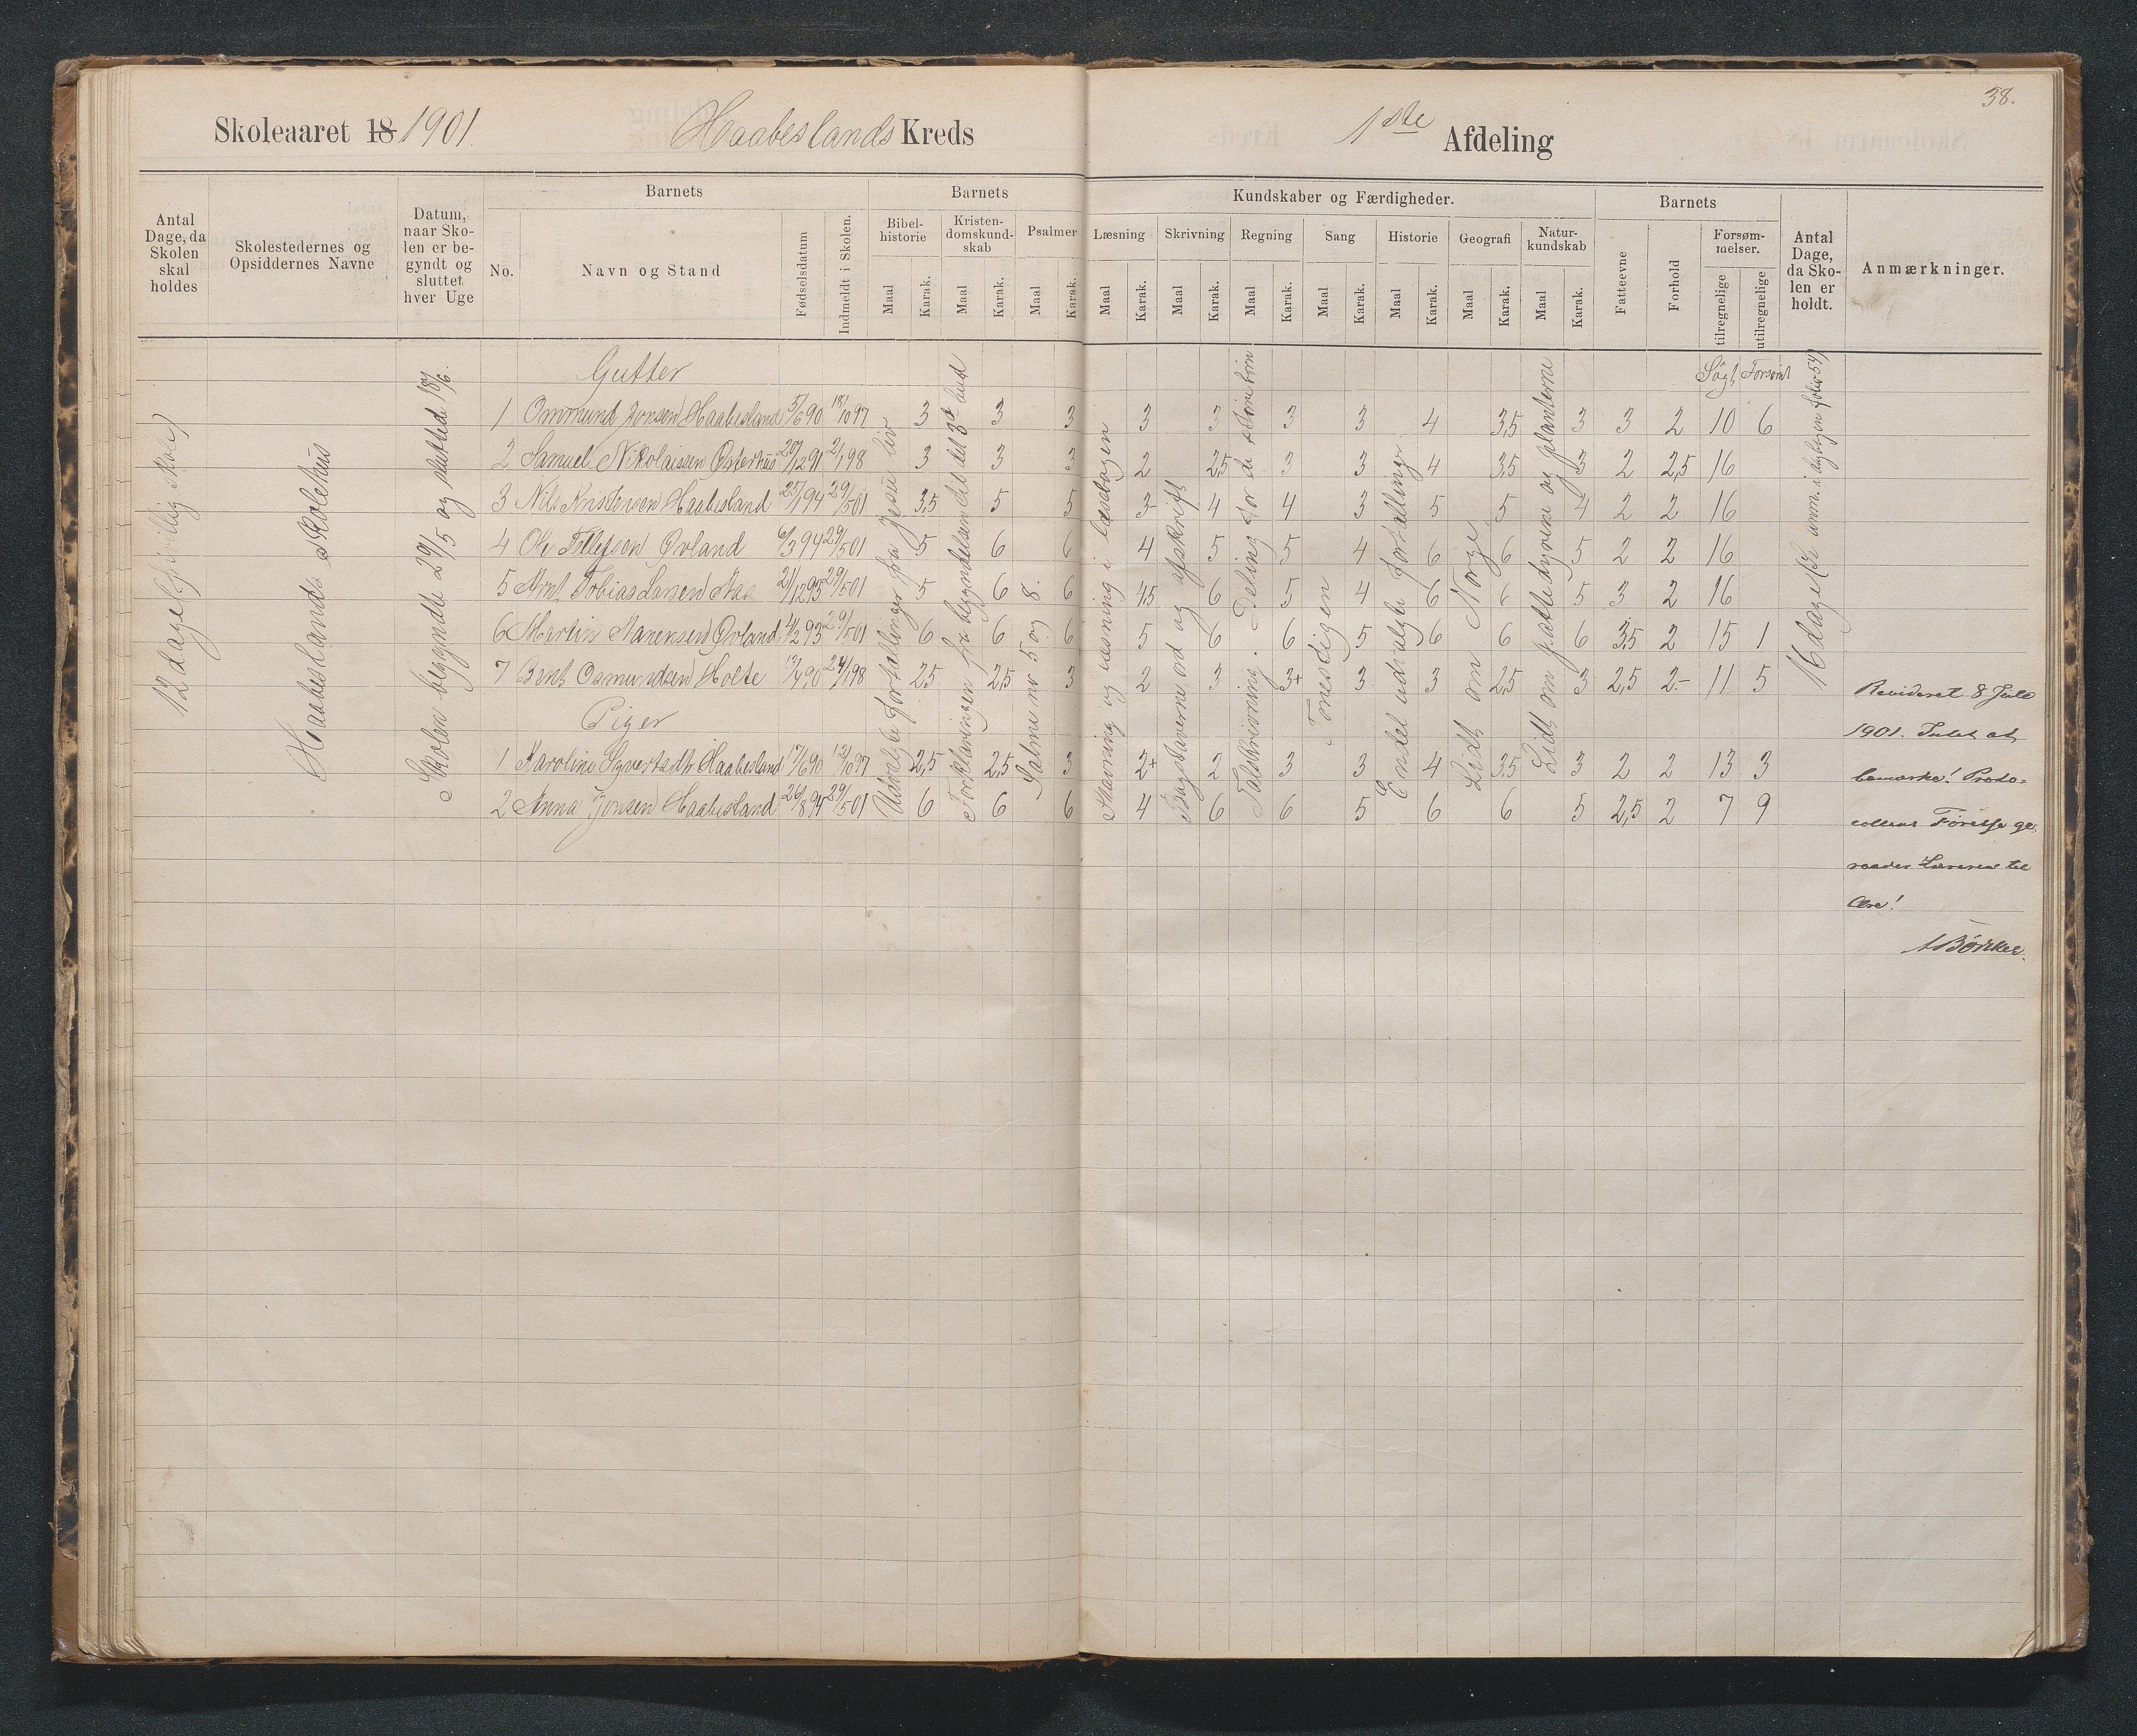 38.
Skoleaaret 18 1901. Haabeslands Kreds 1ste Afdeling
Antal Dage, da Skolen skal holdes
Skolestedernes og Opsiddernes Navne
Datum, naar Skolen er begyndt og sluttet hver Uge
Barnets
No. Navn og Stand Fødselsdatum Indmeldt i Skolen.
Barnets Kundskaber og Færdigheder.
Bibelhistorie Kristendomskundskab Psalmer Læsning Skrivning Regning Sang Historie Geografi Naturkundskab
Maal Karak. Maal Karak. Maal Karak. Maal Karak. Maal Karak. Maal Karak. Maal Karak. Maal Karak. Maal Karak. Maal Karak.
Barnets
Fatteevne Forhold Forsømmelser. tilregnelige utilregnelige
Antal Dage, da Skolen er holdt.
Anmærkninger.
12 dage (frivillig skole)
Haabeslands skolehus
Skolen begyndte 29/5 og sluttede 18/6.
Udvalgte fortællinger fra Jesu liv
Forklaringen fra begyndelsen til det 3d bud
Salme nr 5 og 8.
Stavning og læsning i læsebogen
Bogstaverne, ord og afskrift
Talskrivning. Deling for de større børn
Tonestigen
Endel udvalgte fortællinger
Lidt om Norge
Lidt om pattedyrene og planterne
16 dage (Se anm. i dagbogen folio 54)
Gutter Søgt Forsømt
1 Ommund Jonsen Haabesland 5/6 90 18/10 97 3 3 3 3 3 3 3 4 3,5 3 3 2 10 6
2 Samuel Nikolaissen Østerhus 20/12 91 2/1 98 3 3 3 2 2,5 3 3 4 3,5 3 2 2,5 16
3 Nils Kristensen Haabesland 25/1 94 29/5 01 3,5 5 5 3- 4 4 3 5 5 4 2 2 16
4 Ole Tellefsen Øvland 6/3 94 29/5 01 5 6 6 4 5 5 4 6 6 5 2 2 16
5 Arnt Tobias Larsen Aas 21/12 93 29/5 01 5 6 6 4,5 6 5 4 6 6 5 3 2 16
6 Martin Marensen Øvland 4/2 93 29/5 01 6 6 6 5 6 6 5 6 6 6 3,5 2 15 1
7 Bent Osmundsen Holte 13/4 90 24/1 98 2,5 2,5 3 2 3 3+ 3 3 2,5 3 2,5 2- 11 5
Piger
1 Karoline Syvertsdtr Haabesland 17/6 90 12/10 97 2,5 2,5 3 2+ 2 3 3 4 3,5 3 2 2 13 3
2 Anna Jonsen Haabesland 26/8 94 29/5 01 6 6 6 4 6 6 5 6 6 5 2,5 2 7 9
Revideret 8 Juli
1901. Intet at
bemærke! Proto-
collens Førelse ge-
raader Læreren til
Ære!